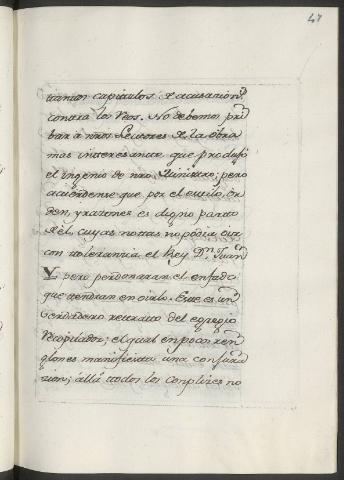 47
tantos capitulos d acusacion.s
contra los Reos. No debemos pri
bar à nros Lectores d la obra
mas interesante que produjo
el ingenio de nro. Ministro; pero
acuerdense que por el estilo, or
den, y razones es digno parto
d èl, cuyas notas no podia oir
con tolerancia el Rey D.n Juan
Y pero perdonaran el enfado
que tendran en oirlo. Este es un
berdadero retrato del egregio
Recopilador; el qual en pocos ren
glones manifiesta una conjura
cion; àlla todos los conplices no